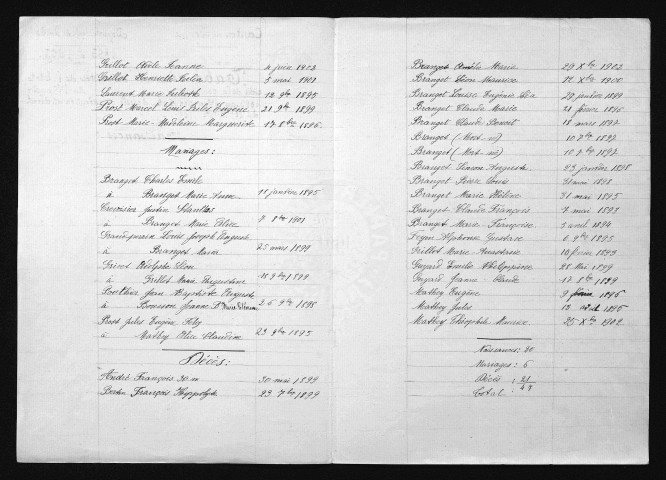 Grillot Adèle Jeanne 4 juin 1902
Grillot Henriette Lucia 5 mai 1901
Laurent Marie 12 9bre 1895
Prost Marcel Louis Jules Eugène 21 9bre 1899
Prost Marie Madeleine Marguerite 17 8bre 1896
Mariages:
Branget Charles Emile
à Branget Marie Anne 18 janvier 1895
Justin
à Branget Marie Alice 7 8bre 1901
Louis Joseph August
à Branget Maria 25 mars 1899
Adolphe Léon
à Grillot Anna Augustine 18 9bre 1899
Jean Baptiste Auguste
à Bouson Jeanne 26 9bre 1898
Prost Jules Eugène
à Mathey Alice Claudine 23 9bre 1895
Décès:
André François 30 mai 1899
Bertin François Hippolyte 23 7bre 1899
Branget Amélie Marie 29 Xbre 1902
Branget Léon Maurice 12 Xbre 1900
Branget Louise Eugénie 29 janvier 1899
Branget Claude Marie 21 février 1896
Branget Claude Benoit 18 mars 1897
Branget (Mort-né) 10 7bre 1892
Branget (Mort-né) 10 7bre 1892
Branget Simon Auguste 23 janvier 1898
Branget Pierre Louis 21 mai 1898
Branget Marie Hélène 31 mai 1895
Branget Claude François 7 mai 1893
Branget Marie Françoise 5 avril 1894
Alphonse Gustave 6 9bre 1895
Grillot Marie Anastasie 10 février 1893
Guyard Emilie Philippine 28 mai 1899
Guyard Jeanne Claude 17 8bre 1899
Mathey Eugène 9 février 1896
Mathey Jules 13 août 1896
Mathey Théophile Maurice 25 Xbre 1902
Naissances: 20
Mariages: 6
Décès : 21
Total : 47